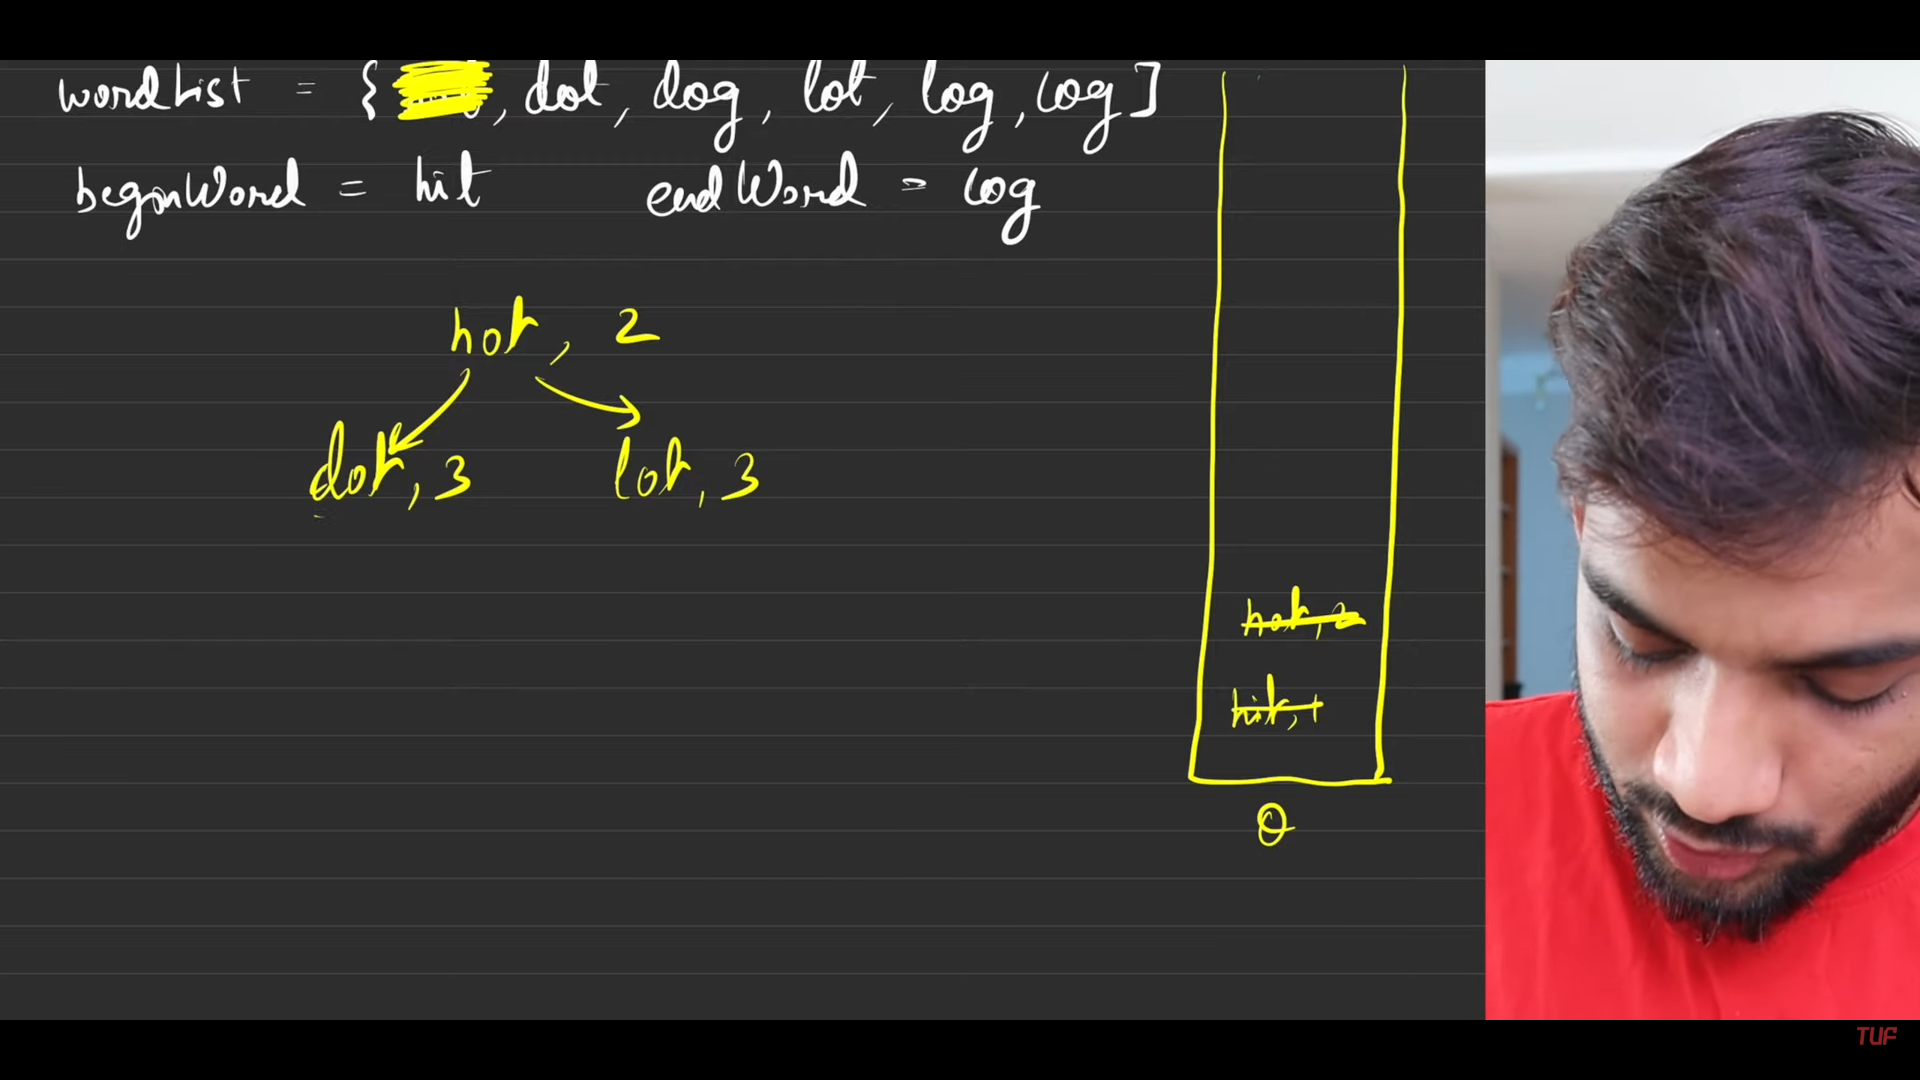 wordList = { , dot, dog, lot, log, cog ]
beginWord = hit endWord = cog
hot, 2
dot, 3 lot, 3
hot, 2
hit, 1
Q
TUF